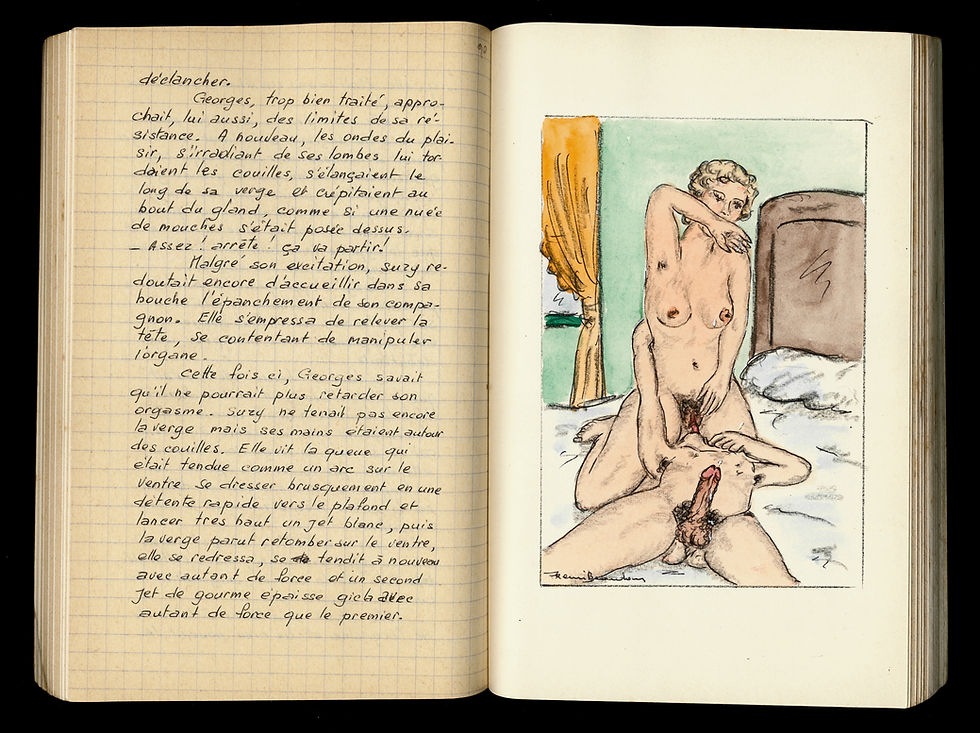 90
déclancher.
Georges, trop bien traité, appro-
chait, lui aussi, des limites de sa ré-
sistance. A nouveau, les ondes du plai-
sir, s'irradiant de ses lombes lui tor-
daient les couilles, s'élançaient le
long de sa verge et crépitaient au
bout du gland, comme si une nuée
de mouches s'était posée dessus.
– Assez ! arrête ! ça va partir !
Malgré son excitation, Suzy re-
doutait encore d'accueillir dans sa
bouche l'épanchement de son compa-
gnon. Elle s'empressa de relever la
tête, se contentant de manipuler
l'organe.
Cette fois ci, Georges savait
qu'il ne pourrait plus retarder son
orgasme. Suzy ne tenait pas encore
la verge mais ses mains étaient autour
des couilles. Elle vit la queue qui
était tendue comme un arc sur le
ventre se dresser brusquement en une
détente rapide vers le plafond et
lancer très haut un jet blanc, puis
la verge parut retomber sur le ventre,
elle se redressa, se tendit à nouveau
avec autant de force et un second
jet de gourme épaisse gicla avec
autant de force que le premier.